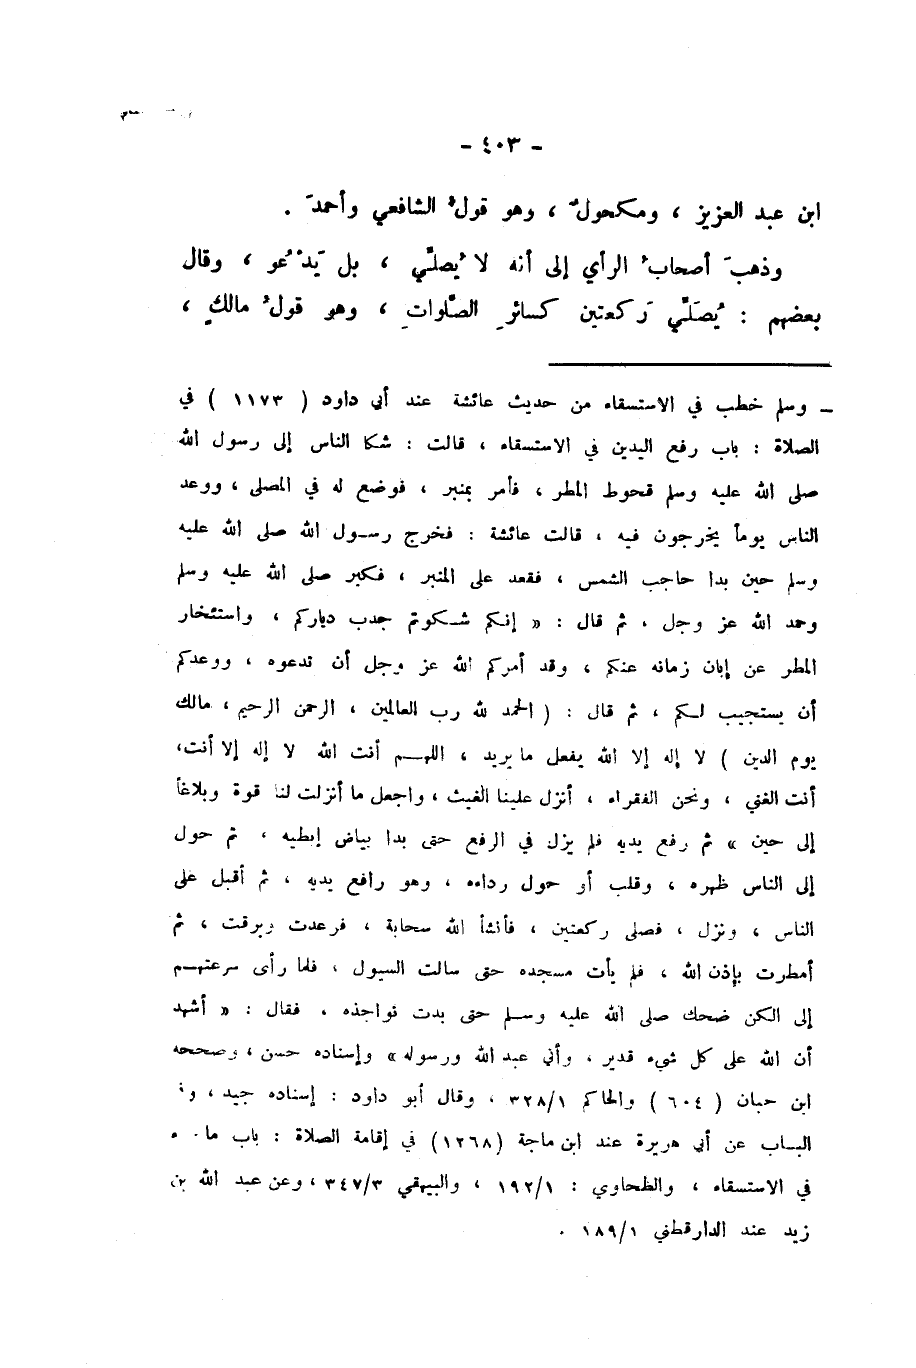 - ٤٠٣ -
ابن عبد العزيز ، ومكحولٌ ، وهو قولُ الشافعي وأحمدَ .
وذهبَ أصحابُ الرأي إلى أنه لا يُصلِّي ، بل يَدْعُو ، وقال
بعضهم : يُصَلِّي رَكعتين كسائرِ الصَّلواتِ ، وهو قولُ مالكٍ ،
ـ وسلم خطب في الاستسقاء من حديث عائشة عند أبي داود ( ١١٧٣ ) في
الصلاة : باب رفع اليدين في الاستسقاء ، قالت : شكا الناس إلى رسول الله
صلى الله عليه وسلم قحوط المطر ، فأمر بمنبر ، فوضع له في المصلى ، ووعد
الناس يوماً يخرجون فيه ، قالت عائشة : فخرج رسول الله صلى الله عليه
وسلم حين بدا حاجب الشمس ، فقعد على المنبر ، فكبر صلى الله عليه وسلم
وحمد الله عز وجل ، ثم قال : « إنكم شكوتم جدب دياركم ، واستئخار
المطر عن إبان زمانه عنكم ، وقد أمركم الله عز وجل أن تدعوه ، ووعدكم
أن يستجيب لكم ، ثم قال : ( الحمد لله رب العالمين ، الرحمن الرحيم ، مالك
يوم الدين ) لا إله إلا الله يفعل ما يريد ، اللهم أنت الله لا إله إلا أنت،
أنت الغني ، ونحن الفقراء ، أنزل علينا الغيث ، واجعل ما أنزلت لنا قوة وبلاغاً
إلى حين » ثم رفع يديه فلم يزل في الرفع حتى بدا بياض إبطيه ، ثم حول
إلى الناس ظهره ، وقلب أو حول رداءه ، وهو رافع يديه ، ثم أقبل على
الناس ، ونزل ، فصلى ركعتين ، فأنشأ الله سحابة ، فرعدت وبرقت ، ثم
أمطرت بإذن الله ، فلم يأت مسجده حتى سالت السيول ، فلما رأى سرعتهم
إلى الكن ضحك صلى الله عليه وسلم حتى بدت نواجذه ، فقال : « أشهد
أن الله على كل شيء قدير ، وأني عبد الله ورسوله » وإسناده حسن ، وصححه
ابن حبان ( ٦٠٤ ) والحاكم ٣٢٨/١ ، وقال أبو داود : إسناده جيد ،
الباب عن أبي هريرة عند ابن ماجة (١٢٦٨) في إقامة الصلاة : باب ما
في الاستسقاء ، والطحاوي : ١٩٢/١ ، والبيهقي ٣٤٧/٣ ، وعن عبد الله بن
زيد عند الدارقطني ١٨٩/١ .